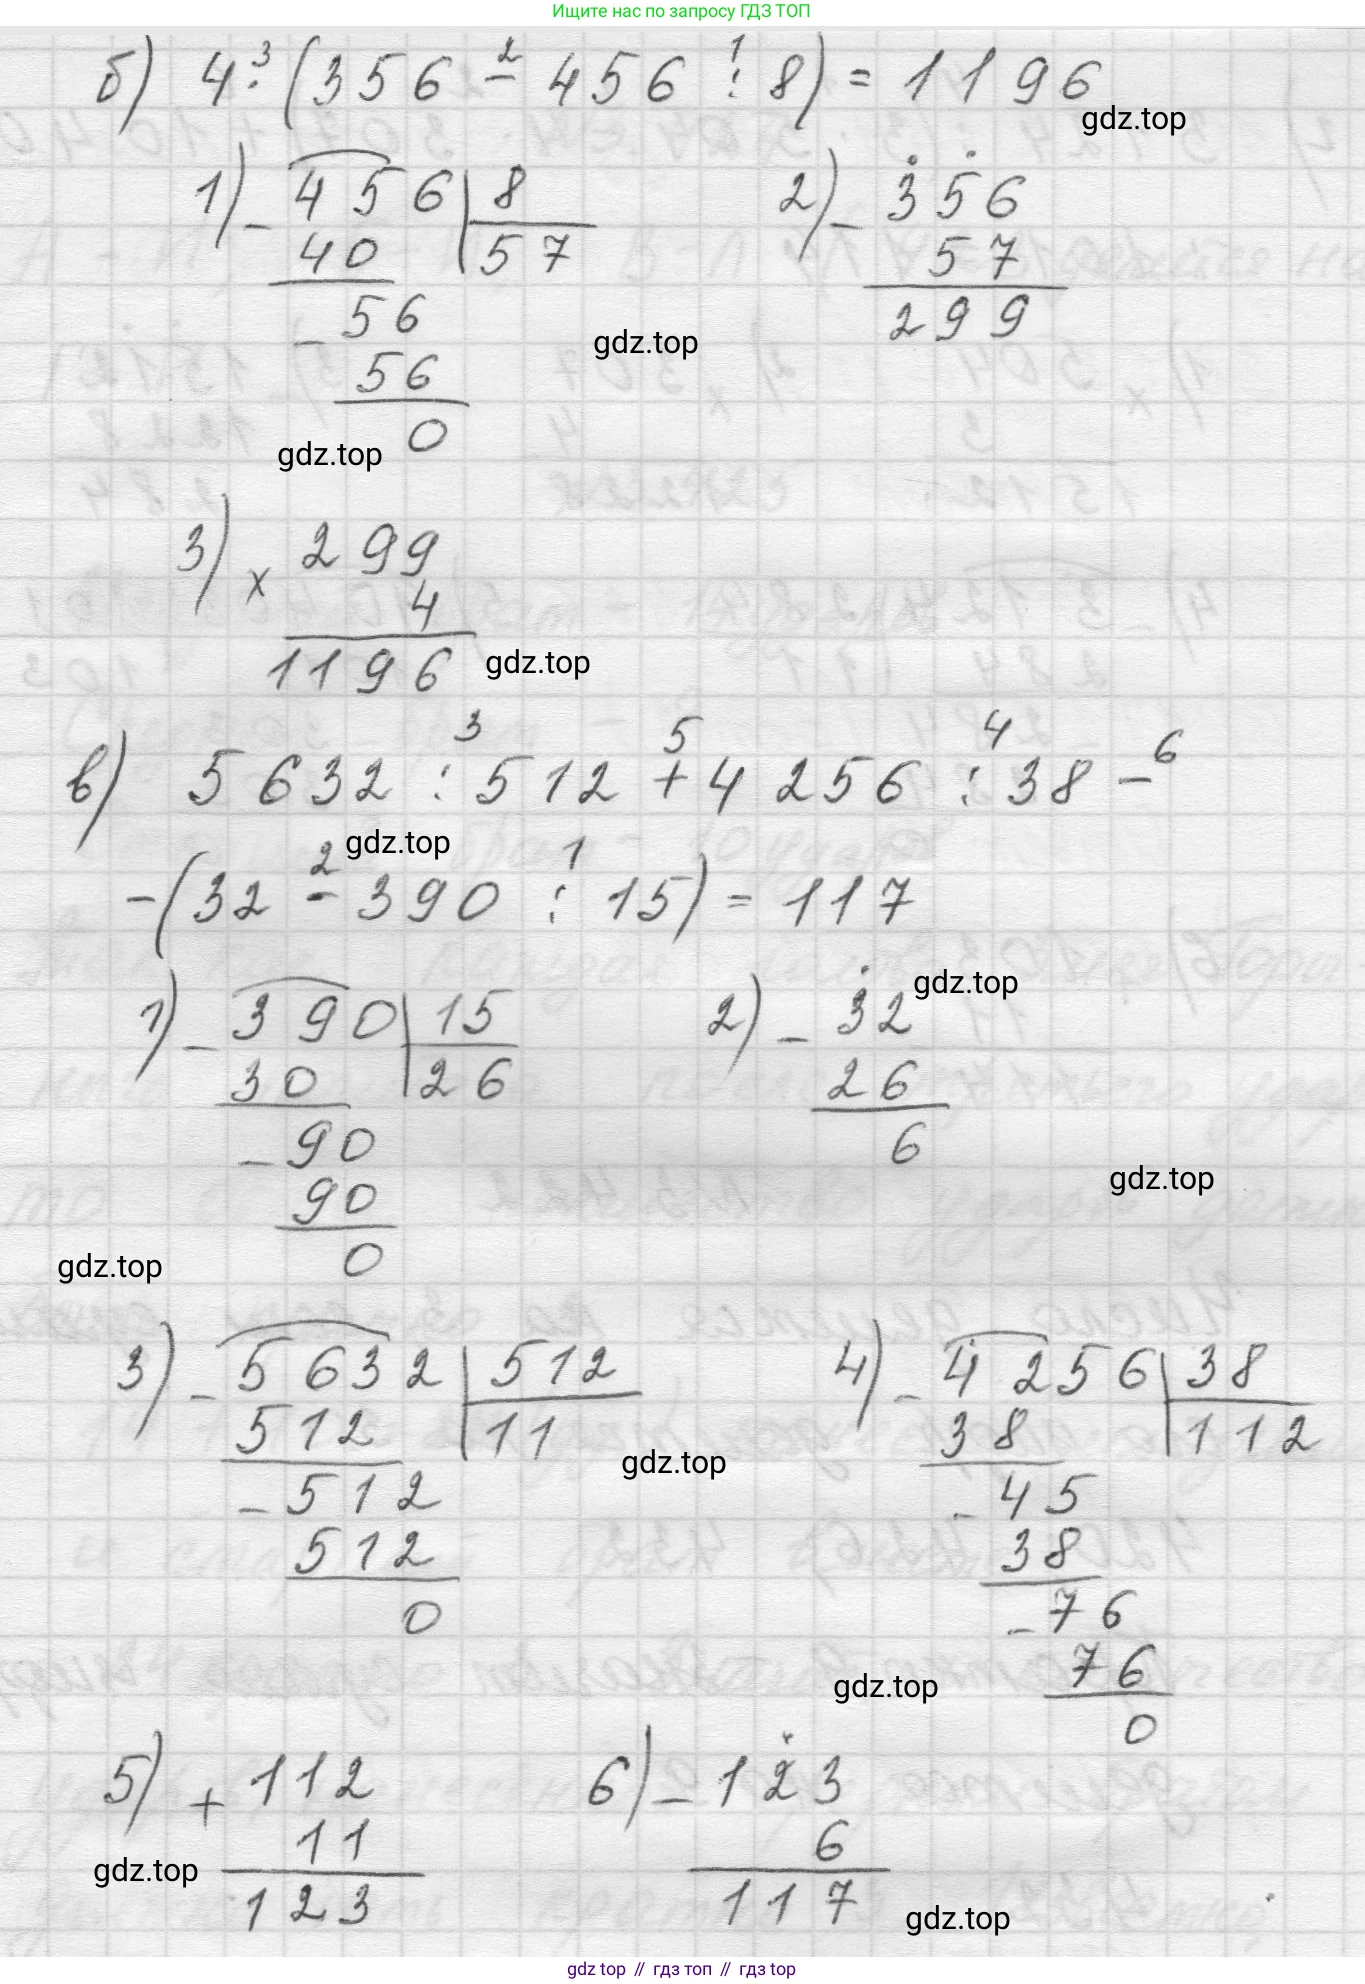 Ищите нас по запросу ГДЗ ТОП
б) 4 · (356 - 456 : 8) = 1196
3 2 1
gdz.top
1) - 456 | 8
40 | 57
- 56
56
0
2) - 356
57
299
gdz.top
gdz.top
3) x 299
4
1196
gdz.top
3 5 4 6
в) 5632 : 512 + 4256 : 38 -
gdz.top
2 1
- (32 - 390 : 15) = 117
gdz.top
1) - 390 | 15
30 | 26
- 90
90
0
2) - 32
26
6
gdz.top
gdz.top
3) - 5632 | 512
512 | 11
- 512
512
0
gdz.top
4) - 4256 | 38
38 | 112
- 45
38
- 76
76
0
gdz.top
5) + 112
11
123
gdz.top
6) - 123
6
117
gdz.top
gdz top // гдз топ // гдз top